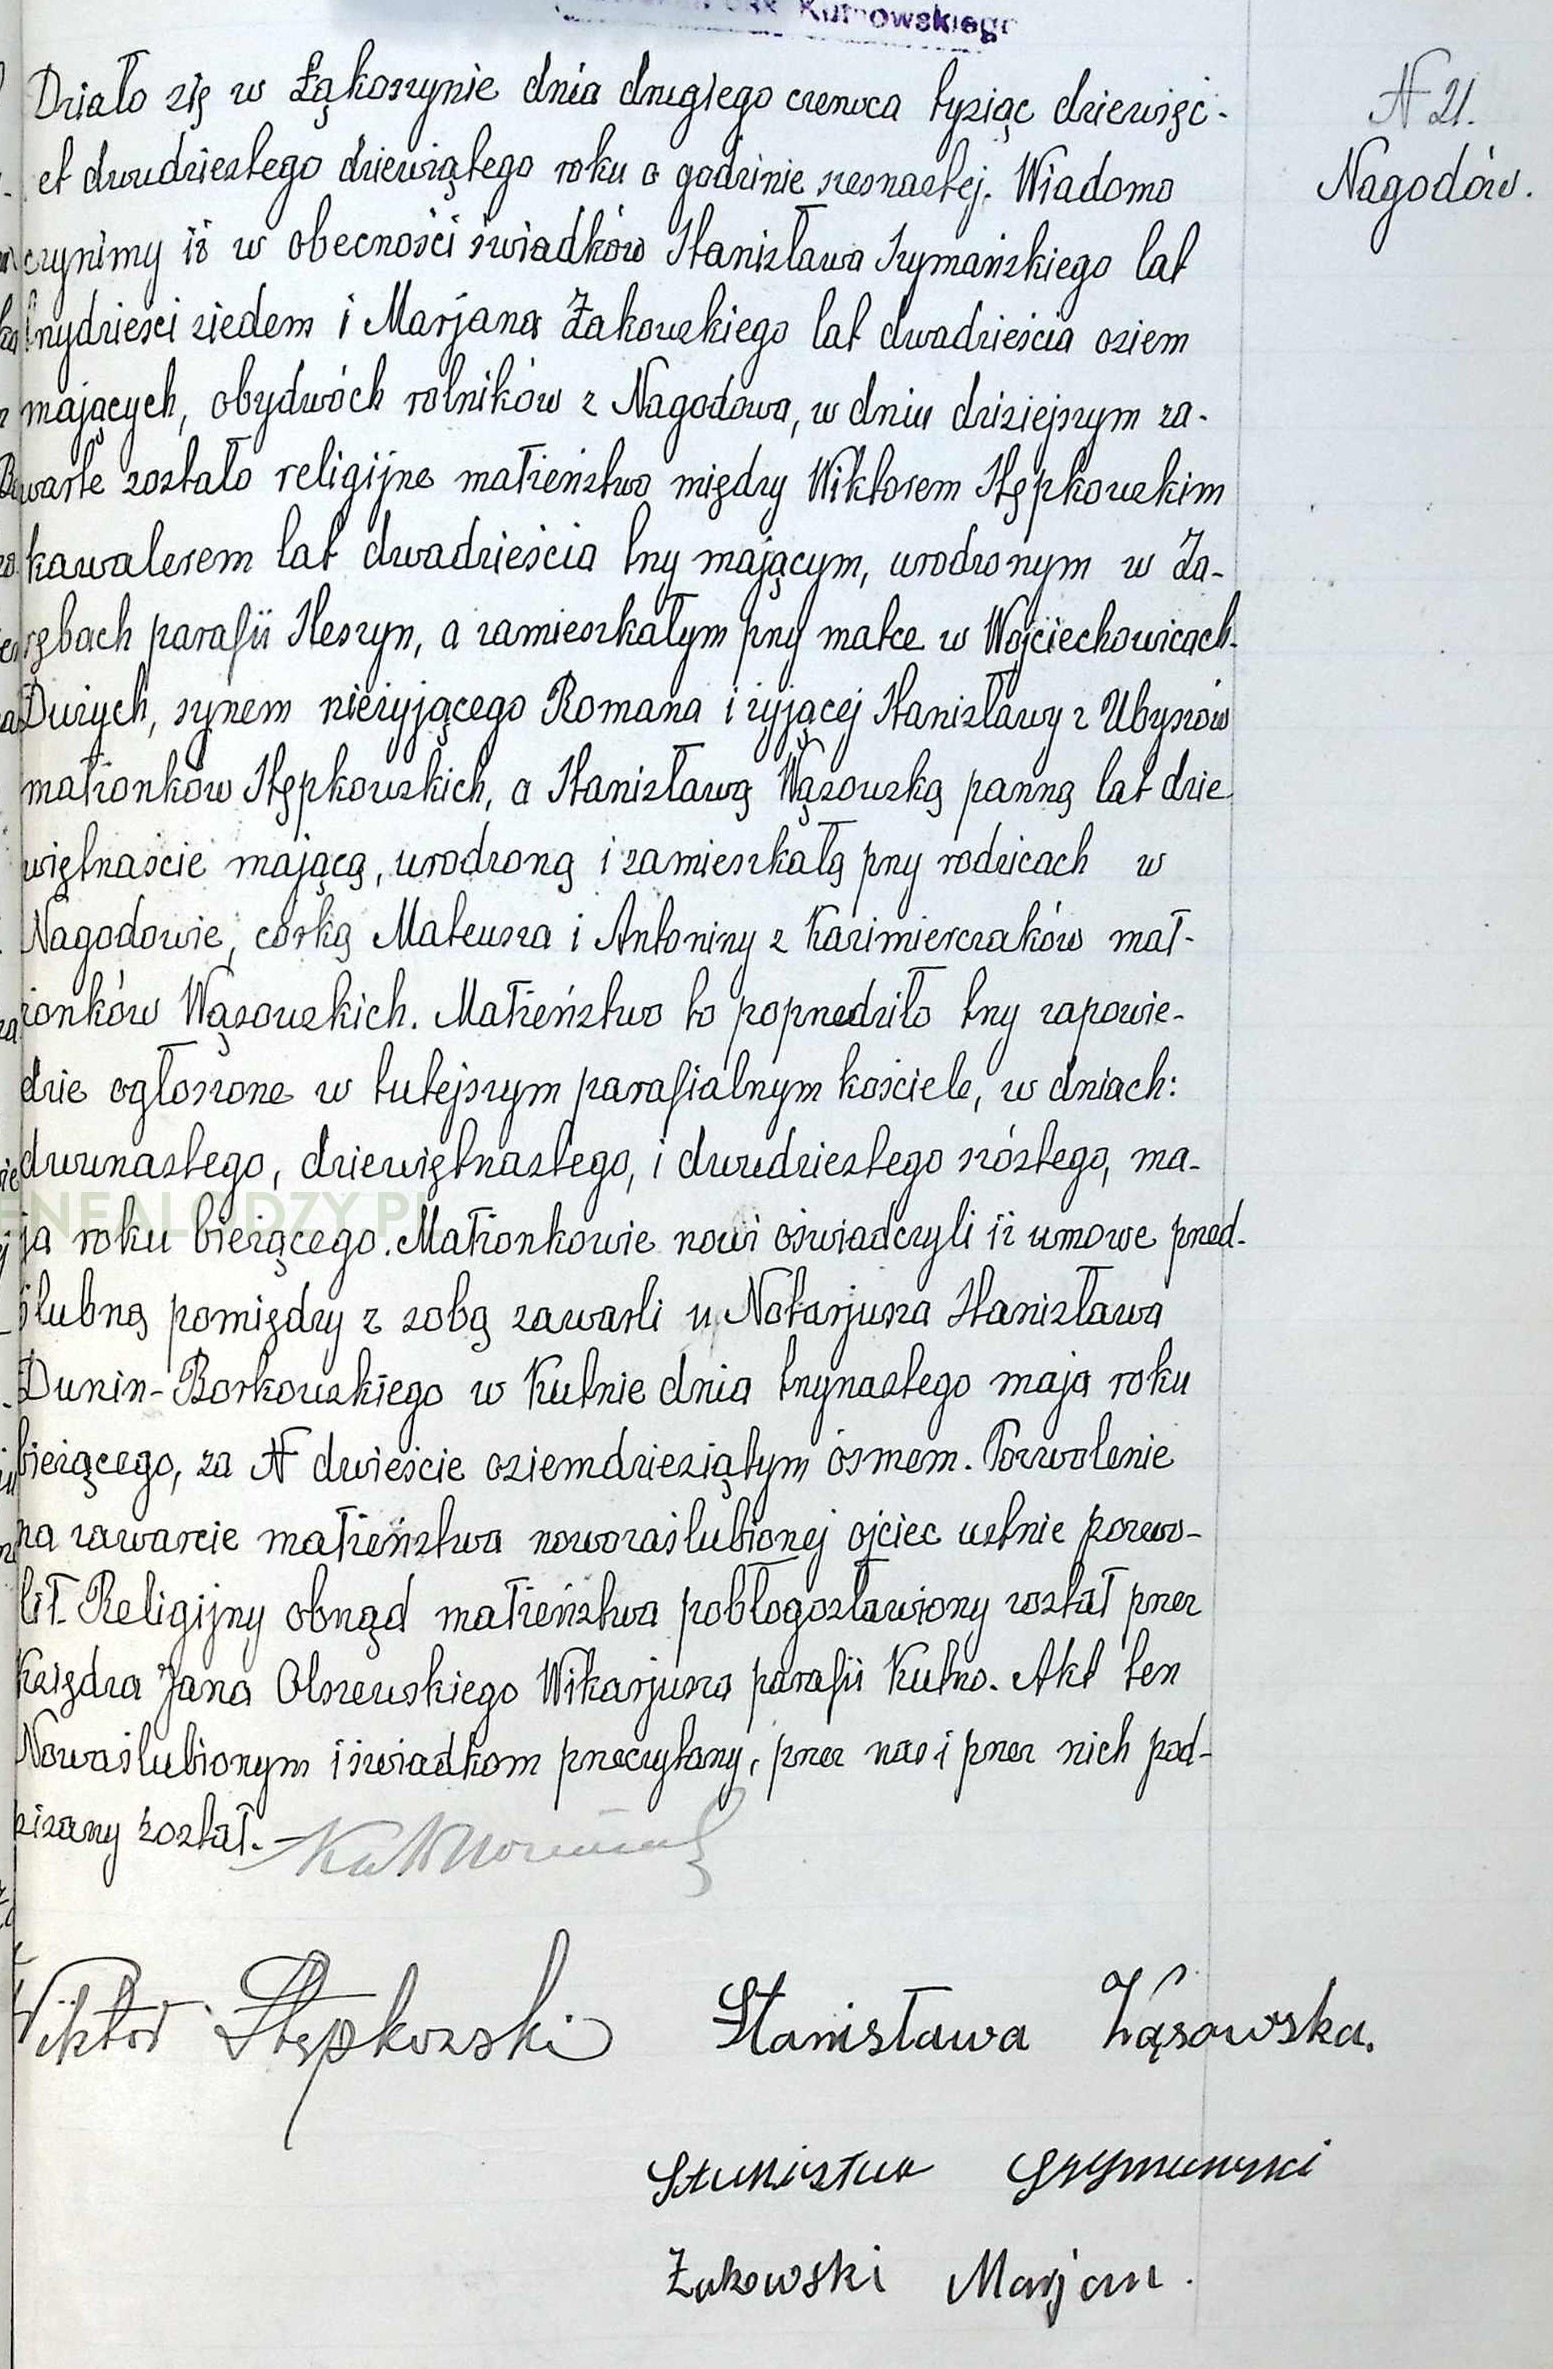 Kutnowskiego
Działo się w Łąkoszynie dnia drugiego czerwca tysiąc dziewięć-
set dwudziestego dziewiątego roku o godzinie szesnastej. Wiadomo
czynimy iż w obecności świadków Stanisława Szymańskiego lat
trzydzieści siedem i Marjana Żakowskiego lat dwadzieścia osiem
mających, obydwóch rolników z Nagodowa, w dniu dzisiejszym za-
warte zostało religijne małżeństwo między Wiktorem Stępkowskim
kawalerem lat dwadzieścia trzy mającym, urodzonym w Za-
rębach parafii Sleszyn, a zamieszkałym przy matce w Wojciechowicach-
Dużych, synem nieżyjącego Romana i żyjącej Stanisławy z Ubyszów
małżonków Stępkowskich, a Stanisławą Wąsowską panną lat dzie
więtnaście mającą, urodzoną i zamieszkałą przy rodzicach w
Nagodowie, córką Mateusza i Antoniny z Kazimierczaków mał-
żonków Wąsowskich. Małżeństwo to poprzedziło trzy zapowie-
dzie ogłoszone w tutejszym parafialnym kościele, w dniach:
dwunastego, dziewiętnastego, i dwudziestego szóstego, ma-
ja roku bieżącego. Małżonkowie nowi oświadczyli iż umowe przed-
ślubną pomiędzy z sobą zawarli u Notarjusza Stanisława
Dunin-Borkowskiego w Kutnie dnia trzynastego maja roku
bieżącego, za № dwieście osiemdziesiątym ósmem. Pozwolenie
na zawarcie małżeństwa nowozaślubionej ojciec ustnie pozwo-
lił. Religijny obrząd małżeństwa pobłogosławiony został przez
Księdza Jana Olszewskiego Wikarjusza parafii Kutno. Akt ten
Nowaślubionym i świadkom przeczytany, przez nas i przez nich pod-
pisany został.
Wiktor Stępkowski Stanisława Wąsowska.
Stanisław Szymański
Żakowski Marjan.
№ 21.
Nagodów.
GENEALODZY.PL